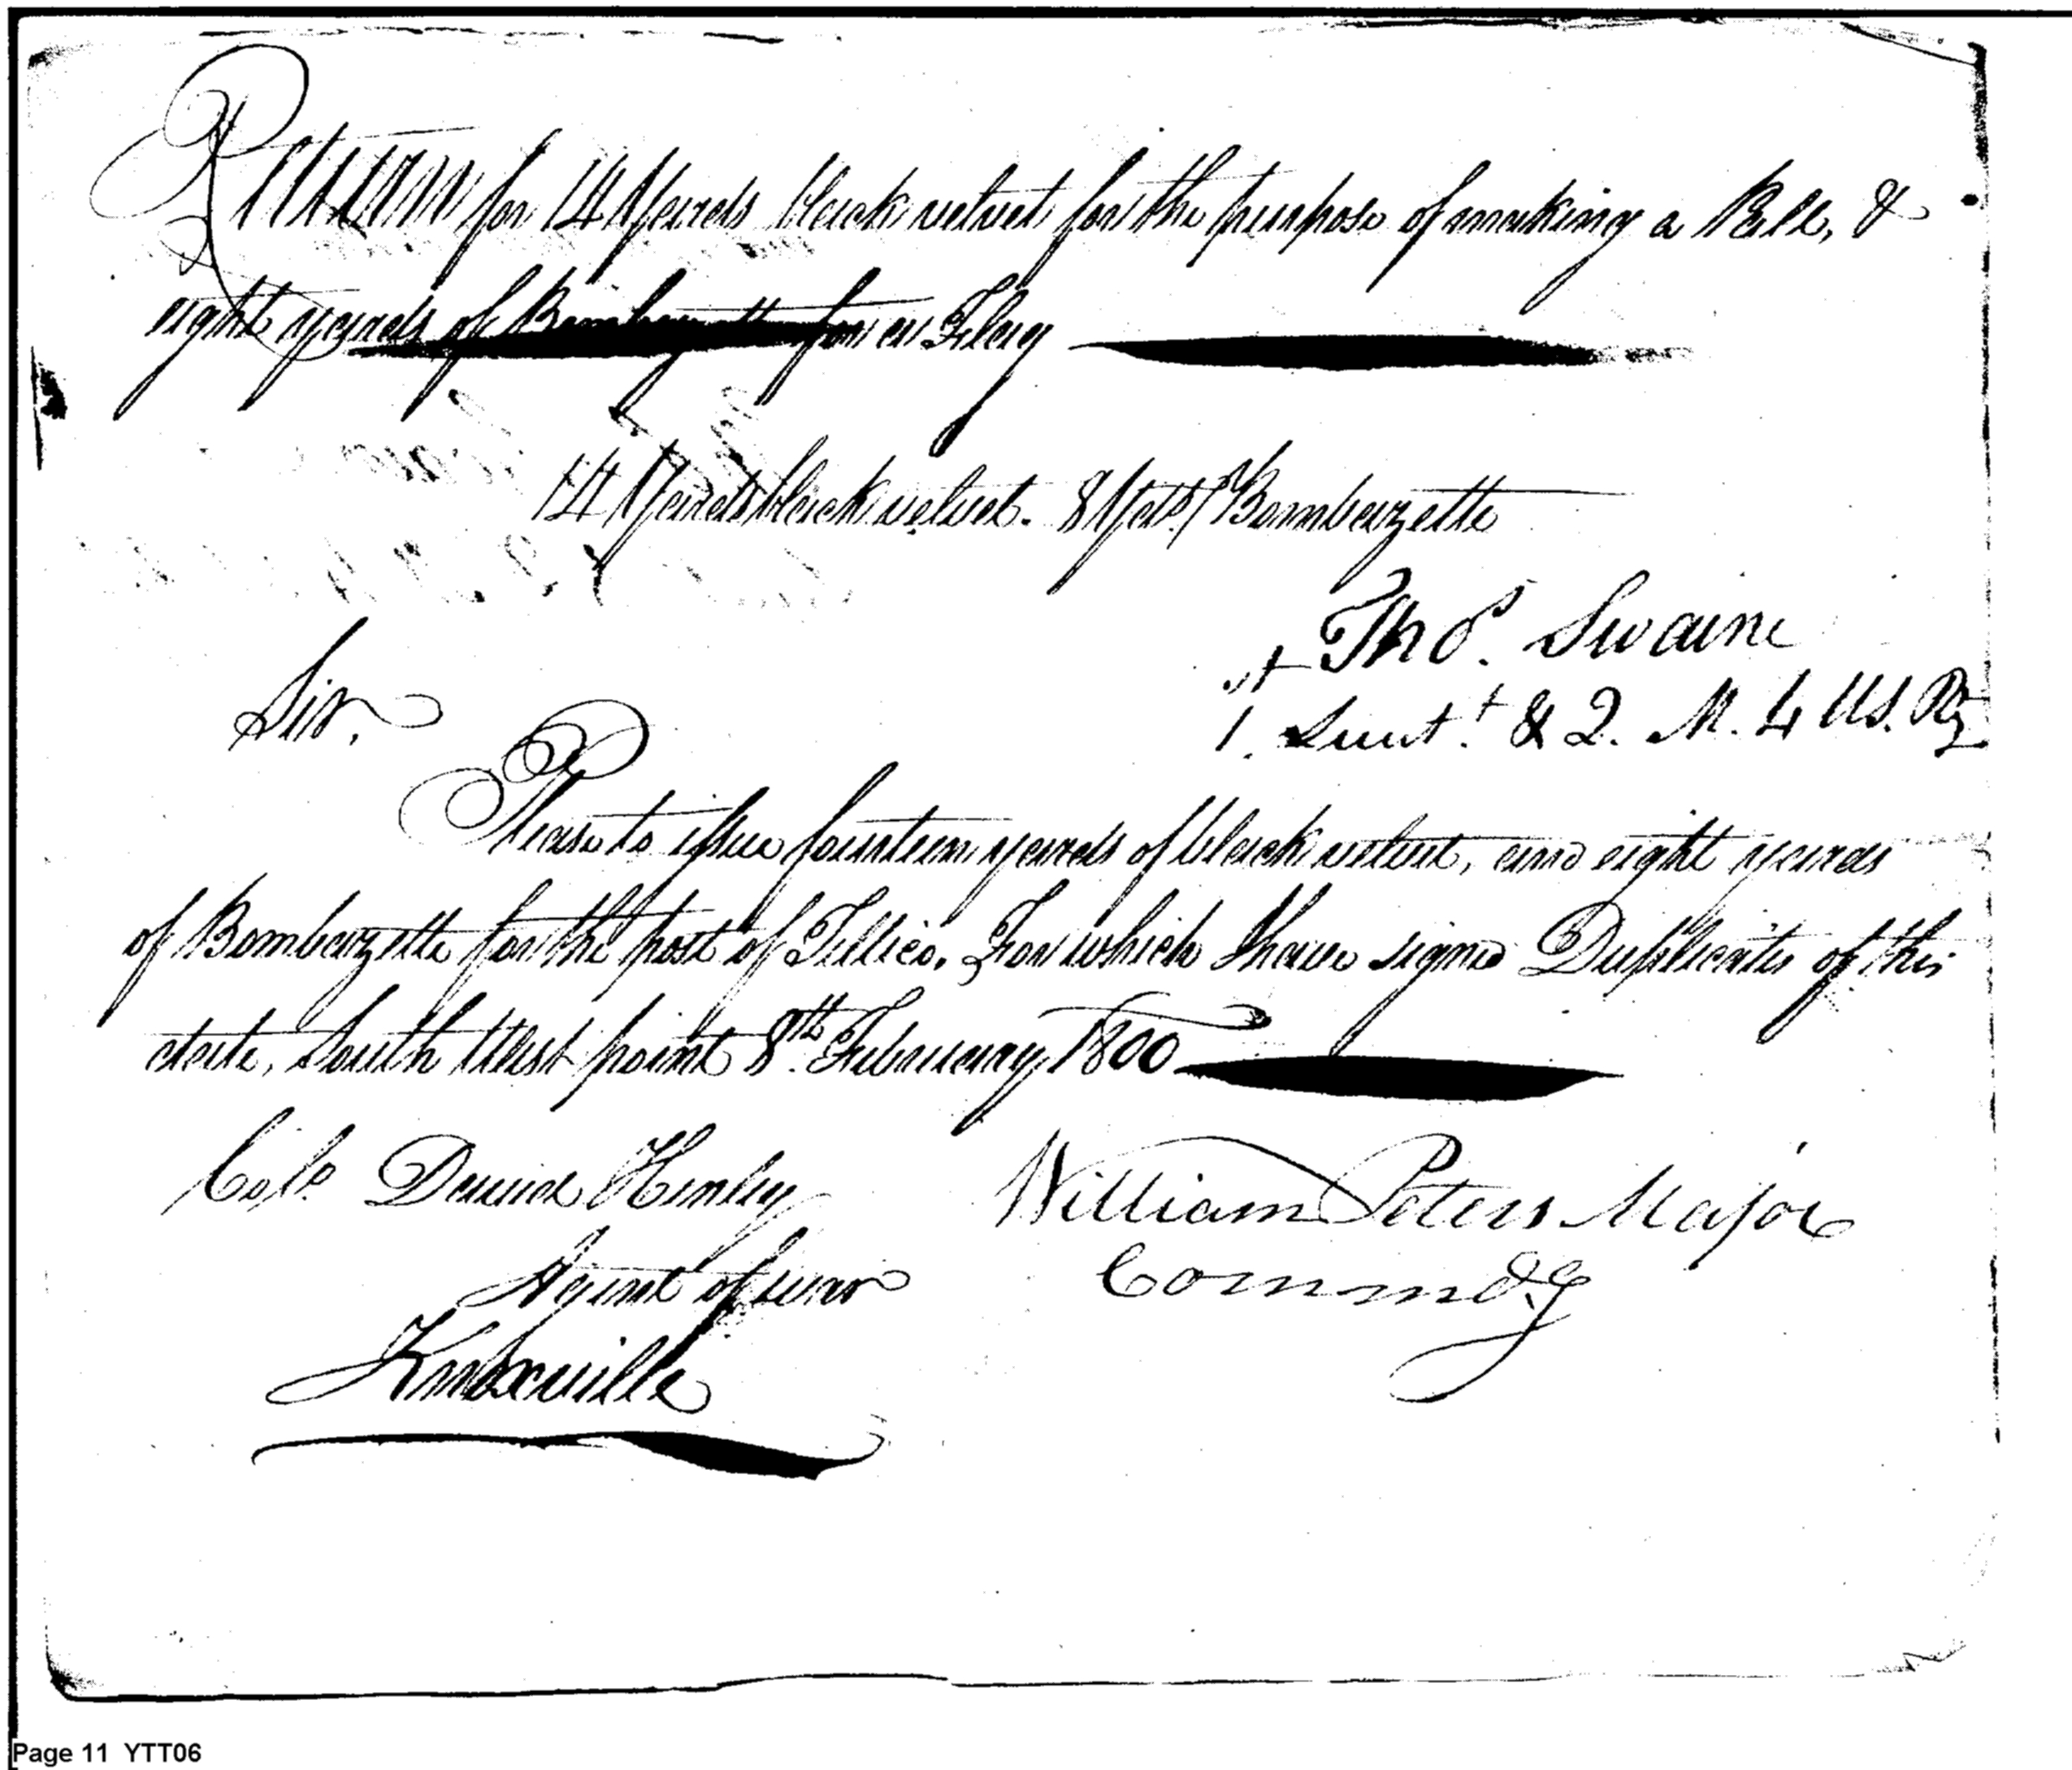 Return for 14 Yards black velvet for the purpose of making a Pall, &
eight yards of Bombazette for a Flag
14 Yards black velvet. 8 Yds. Bombazette
Thos. Swaine
1st. Lieut.t & Q. M. 4 US. Rg
Sir,
Please to issue fourteen yards of black velvet, and eight yards
of Bombazette for the post of Tellico, For which I have signed Duplicates of this
date, South West point 8th. February 1800
Colo. David Henley
Agent of war
Knoxville
William Peters Major
Commdg
Page 11 YTT06